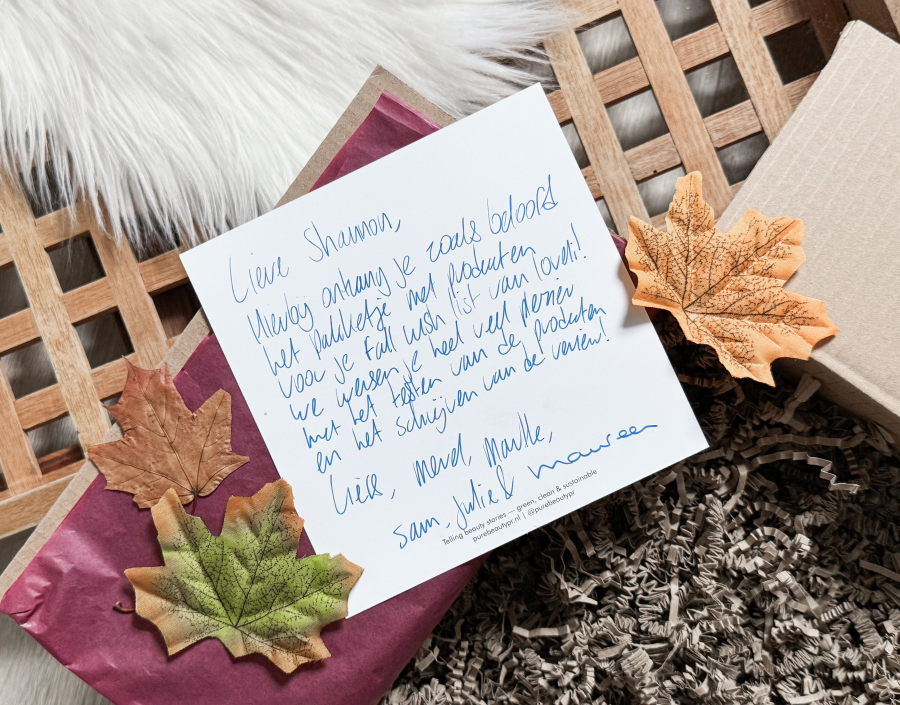 Lieve Shannon,
Hierbij ontvang je zoals beloofd
het pakketje met producten
voor je fall wish list van lovali!
we wensen je heel veel plezier
met het testen van de producten
en het schrijven van de review!
Liefs, merel, maille,
sam, Julie & maureen
Telling beauty stories — green, clean & sustainable
purebeautypr.nl | @purebeautypr